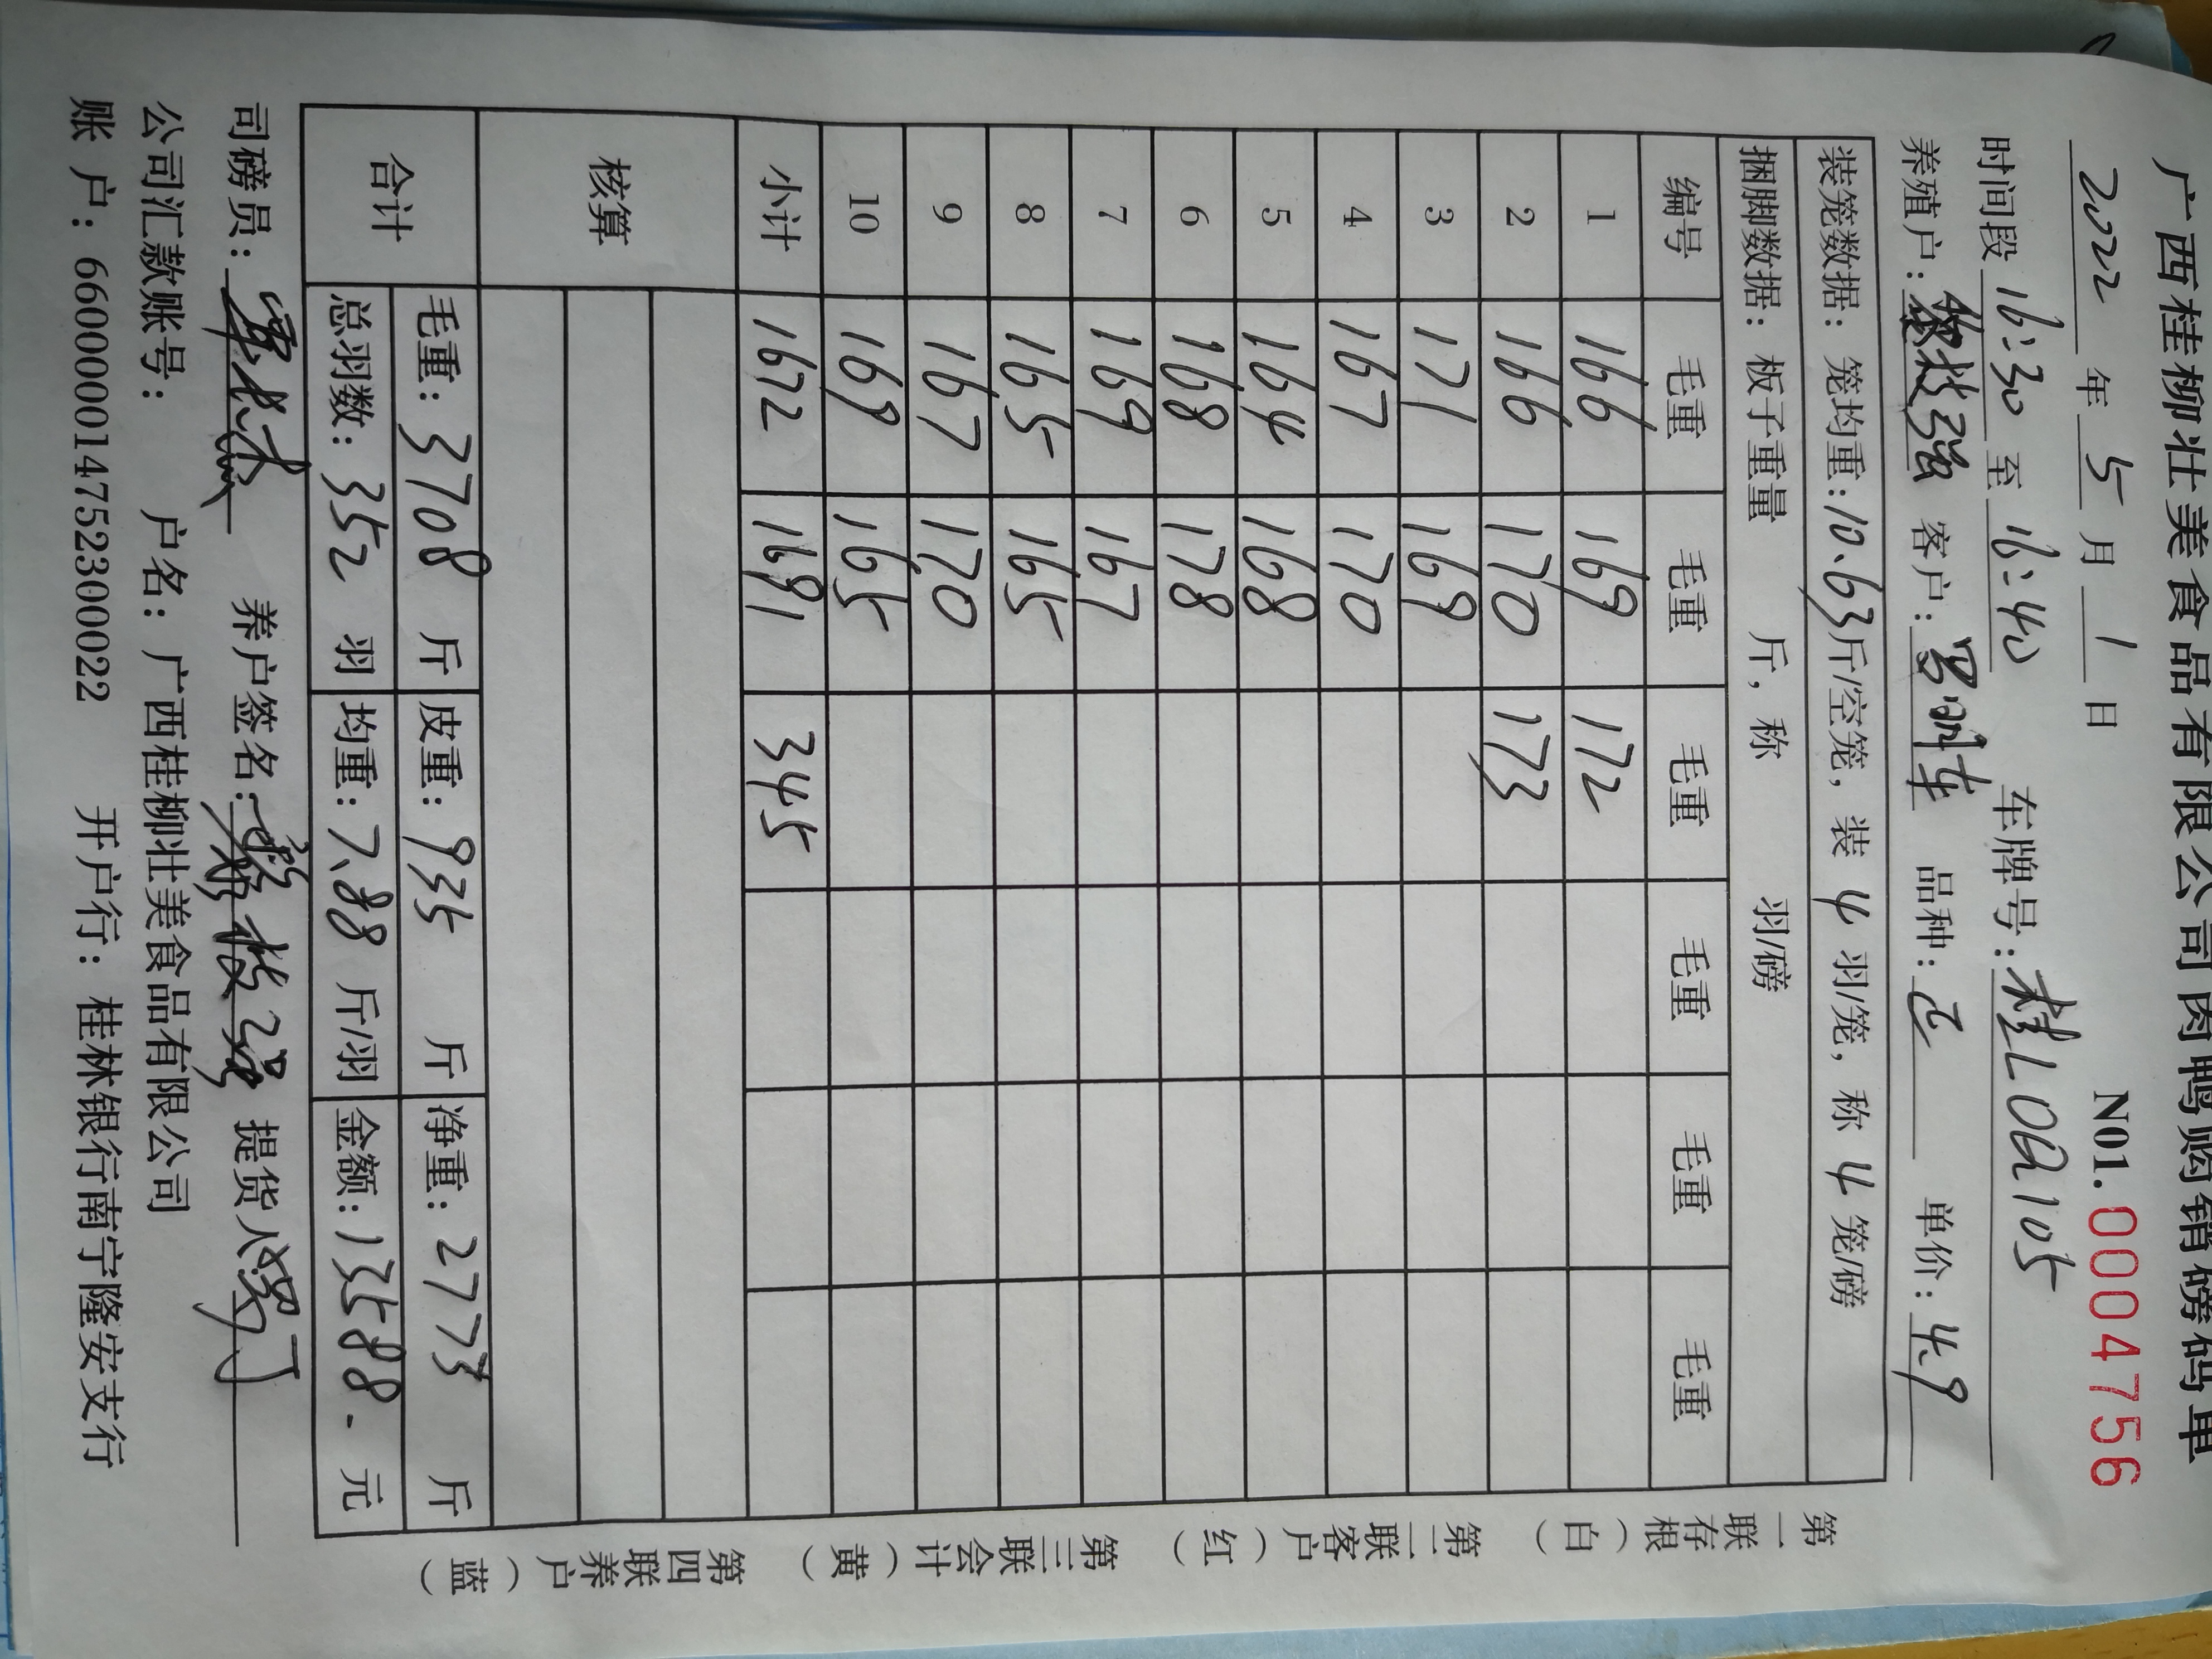 广西桂柳壮美食品有限公司肉鸭购销磅码单
2022 年 5 月 1 日 N01. 0004756
时间段 16:30 至 16:40 车牌号: 桂L0Q105
养殖户: 黎枝强 客户: 品种: 正 单价: 4.9
装笼数据: 笼均重: 10.63 斤/空笼, 装 4 羽/笼, 称 4 笼/磅
捆脚数据: 板子重量 斤, 称 羽/磅
编号 毛重 毛重 毛重 毛重 毛重 毛重
1 166 169 172
2 166 170 173
3 171 169
4 167 170
5 164 168
6 168 178
7 169 167
8 165 165
9 167 170
10 169 165
小计 1672 1691 345
核算
合计 毛重: 3708 斤 皮重: 935 斤 净重: 2773 斤
总羽数: 352 羽 均重: 7.88 斤/羽 金额: 13588. 元
司磅员: 养户签名: 黎枝强 提货人:
公司汇款账号: 户名: 广西桂柳壮美食品有限公司
账 户: 660000014752300022 开户行: 桂林银行南宁隆安支行
第一联存根(白) 第二联客户(红) 第三联会计(黄) 第四联养户(蓝)